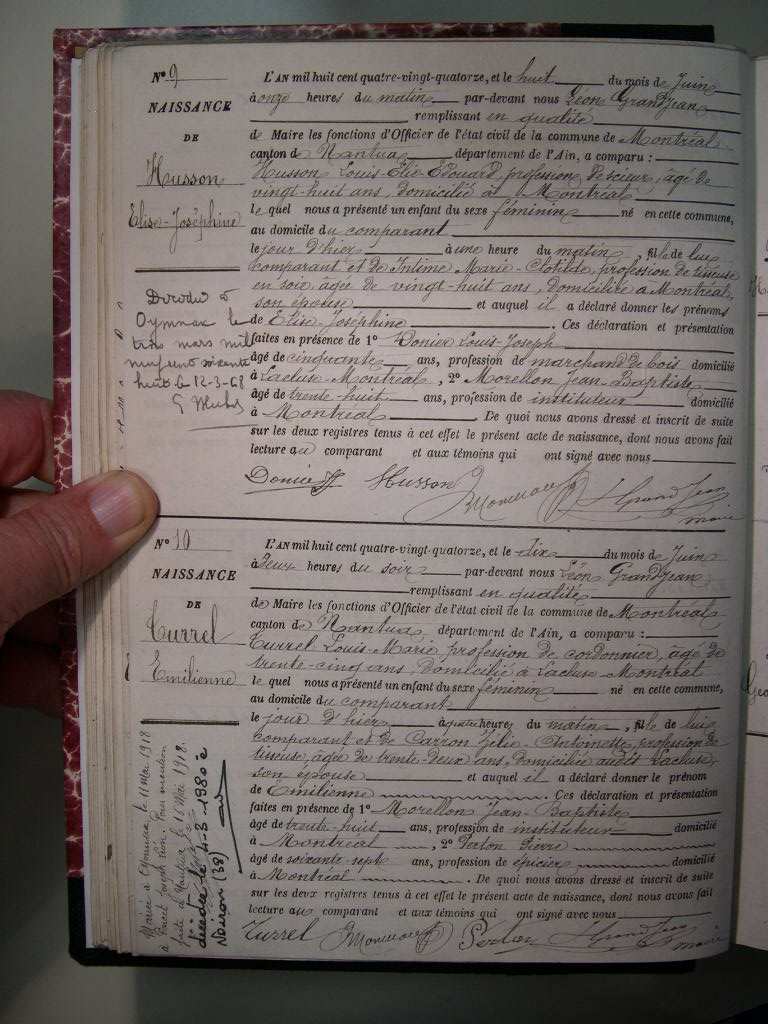 N° 9
NAISSANCE
DE
Husson
Elise-Joséphine
Décédée à
Oyonnax le
trois mars mil
neuf cent soixante
huit le 12-3-68
L'AN mil huit cent quatre-vingt-quatorze, et le huit du mois de Juin
à onze heures du matin par-devant nous Léon Grandjean
remplissant en qualité
de Maire les fonctions d'Officier de l'état civil de la commune de Montréal
canton de Nantua département de l'Ain, a comparu :
Husson Louis-Elie-Edouard, profession de scieur, âgé de
vingt-huit ans, domicilié à Montréal
le quel nous a présenté un enfant du sexe féminin né en cette commune,
au domicile du comparant
le jour d'hier à une heure du matin, fille de lui
comparant et de Intime Marie-Clotilde, profession de tisseuse
en soie, âgée de vingt-huit ans, domiciliée à Montréal,
son épouse et auquel il a déclaré donner les prénoms
de Elise-Joséphine. Ces déclaration et présentation
faites en présence de 1° Donier Louis-Joseph
âgé de cinquante ans, profession de marchand de bois domicilié
à Lacluse-Montréal, 2° Morellon Jean-Baptiste
âgé de trente-huit ans, profession de instituteur domicilié
à Montréal. De quoi nous avons dressé et inscrit de suite
sur les deux registres tenus à cet effet le présent acte de naissance, dont nous avons fait
lecture au comparant et aux témoins qui ont signé avec nous
Donier Husson Morellon L. Grandjean
maire
N° 10
NAISSANCE
DE
Turrel
Emilienne
Mariée à Oyonnax, le 11 Mai 1918
à Joseph Léon. Pour mention
faite à Nantua le 11 Mai 1918.
décédée le 4-3-1980 à
Voiron (38)
L'AN mil huit cent quatre-vingt-quatorze, et le dix du mois de Juin
à deux heures du soir par-devant nous Léon Grandjean
remplissant en qualité
de Maire les fonctions d'Officier de l'état civil de la commune de Montréal
canton de Nantua, département de l'Ain, a comparu :
Turrel Louis-Marie, profession de cordonnier, âgé de
trente-cinq ans, domicilié à Lacluse-Montréal
le quel nous a présenté un enfant du sexe féminin né en cette commune,
au domicile du comparant
le jour d'hier à quatre heures du matin, fille de lui
comparant et de Carron Zélie-Antoinette, profession de
tisseuse, âgée de trente-deux ans, domiciliée audit Lacluse,
son épouse et auquel il a déclaré donner le prénom
de Emilienne. Ces déclaration et présentation
faites en présence de 1° Morellon Jean-Baptiste
âgé de trente-huit ans, profession de instituteur domicilié
à Montréal, 2° Perton Pierre
âgé de soixante-sept ans, profession de épicier domicilié
à Montréal. De quoi nous avons dressé et inscrit de suite
sur les deux registres tenus à cet effet le présent acte de naissance, dont nous avons fait
lecture au comparant et aux témoins qui ont signé avec nous
Turrel Morellon Perton L. Grandjean
maire